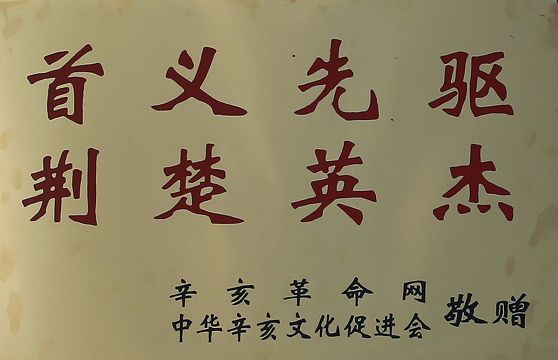 首义先驱
荆楚英杰
辛亥革命网
中华辛亥文化促进会 敬赠